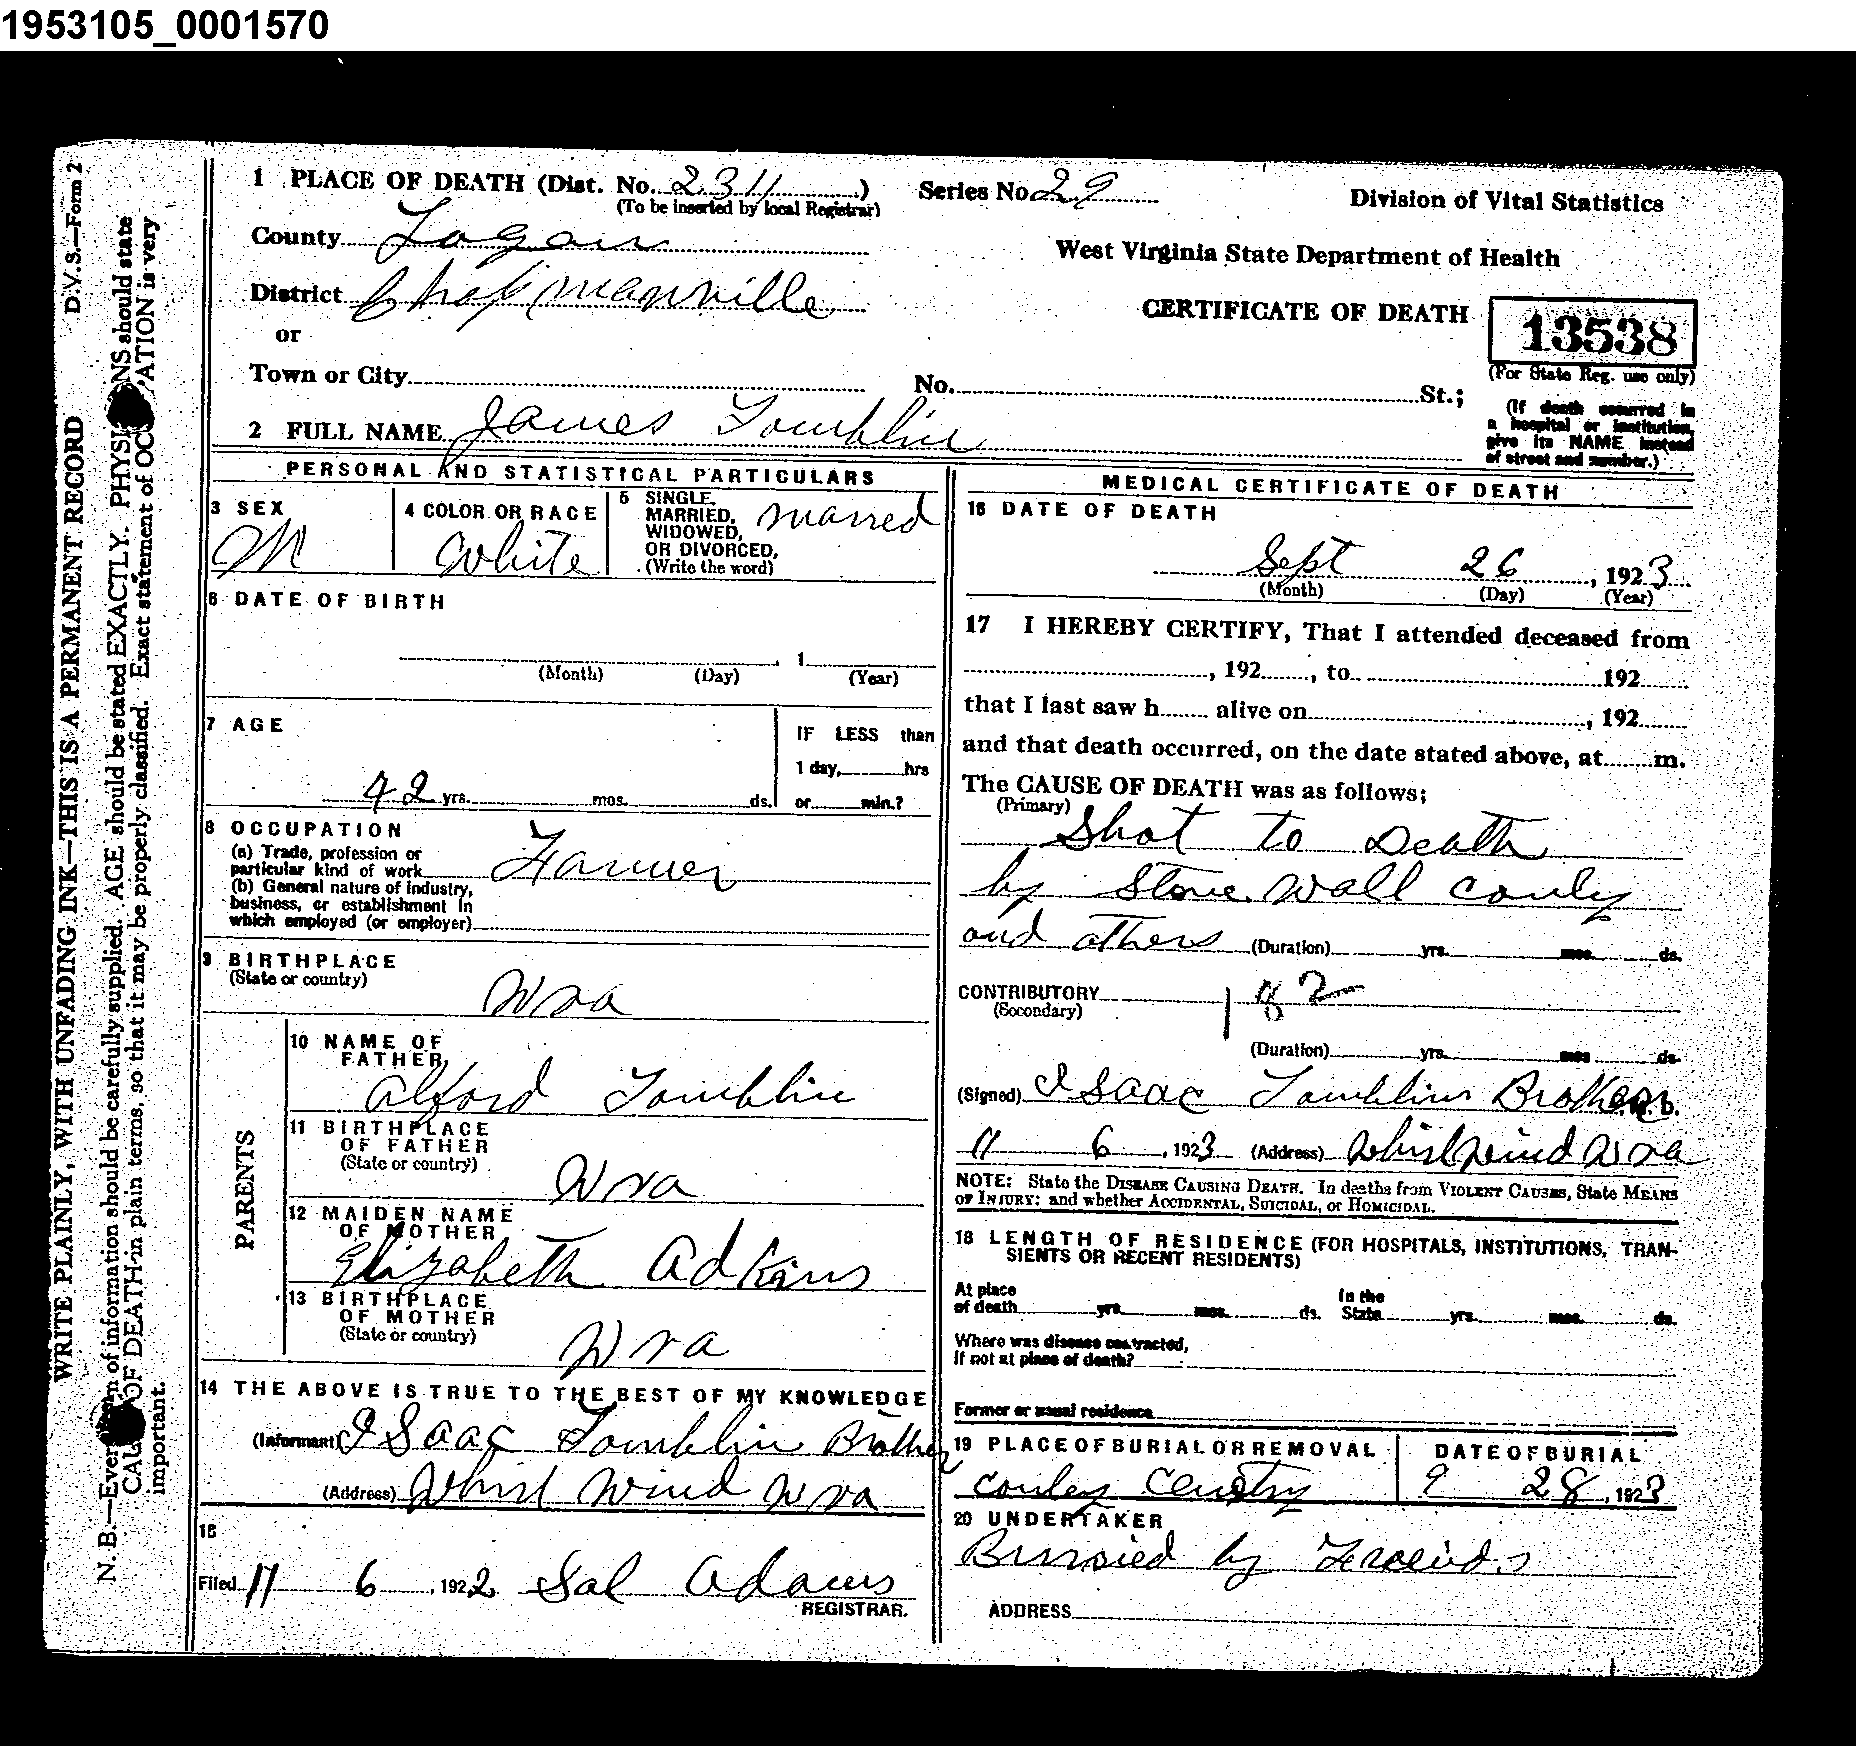 1953105_0001570
D.V.S.—Form 2
WRITE PLAINLY, WITH UNFADING INK—THIS IS A PERMANENT RECORD
N. B.—Every item of information should be carefully supplied. AGE should be stated EXACTLY. PHYSI NS should state
CAU OF DEATH in plain terms, so that it may be properly classified. Exact statement of OCC ATION is very
important.
1 PLACE OF DEATH (Dist. No. 2311 )
(To be inserted by local Registrar)
Series No 29
Division of Vital Statistics
County Logan
West Virginia State Department of Health
District Chapmanville
or
CERTIFICATE OF DEATH
13538
(For State Reg. use only)
Town or City
No. St.;
(If death occurred in
a hospital or institution,
give its NAME instead
of street and number.)
2 FULL NAME James Tomblin
PERSONAL AND STATISTICAL PARTICULARS
3 SEX
M
4 COLOR OR RACE
White
5 SINGLE,
MARRIED,
WIDOWED,
OR DIVORCED,
(Write the word)
marred
6 DATE OF BIRTH
, 1
(Month) (Day) (Year)
7 AGE
42 yrs. mos. ds.
IF LESS than
1 day, hrs
or min.?
8 OCCUPATION
(a) Trade, profession or
particular kind of work Farmer
(b) General nature of industry,
business, or establishment in
which employed (or employer)
9 BIRTHPLACE
(State or country)
Wva
PARENTS
10 NAME OF
FATHER
Alford Tomblin
11 BIRTHPLACE
OF FATHER
(State or country)
Wva
12 MAIDEN NAME
OF MOTHER
Elizabeth Adkins
13 BIRTHPLACE
OF MOTHER
(State or country)
Wva
14 THE ABOVE IS TRUE TO THE BEST OF MY KNOWLEDGE
(Informant) Isaac Tomblin Brother
(Address) Whirl Wind Wva
15
Filed 11 6 , 1922 Sal Adams
REGISTRAR.
MEDICAL CERTIFICATE OF DEATH
16 DATE OF DEATH
Sept 26 , 1923
(Month) (Day) (Year)
17 I HEREBY CERTIFY, That I attended deceased from
, 192 , to 192
that I last saw h alive on , 192
and that death occurred, on the date stated above, at m.
The CAUSE OF DEATH was as follows;
(Primary)
Shot to Death
by Stone wall Conly
and others (Duration) yrs. mos. ds.
CONTRIBUTORY
(Secondary)
(Duration) yrs. mos ds.
(Signed) Isaac Tomblin Brother M. D.
11 6 , 1923 (Address) Whirlwind Wva
NOTE: State the DISEASE CAUSING DEATH. In deaths from VIOLENT CAUSES, State MEANS
OF INJURY; and whether ACCIDENTAL, SUICIDAL, or HOMICIDAL.
18 LENGTH OF RESIDENCE (FOR HOSPITALS, INSTITUTIONS, TRAN-
SIENTS OR RECENT RESIDENTS)
At place
of death yrs. mos. ds.
In the
State yrs. mos. ds.
Where was disease contracted,
if not at place of death?
Former or usual residence
19 PLACE OF BURIAL OR REMOVAL
Conley Cemetry
DATE OF BURIAL
9 28 , 1923
20 UNDERTAKER
Burried by Freinds
ADDRESS